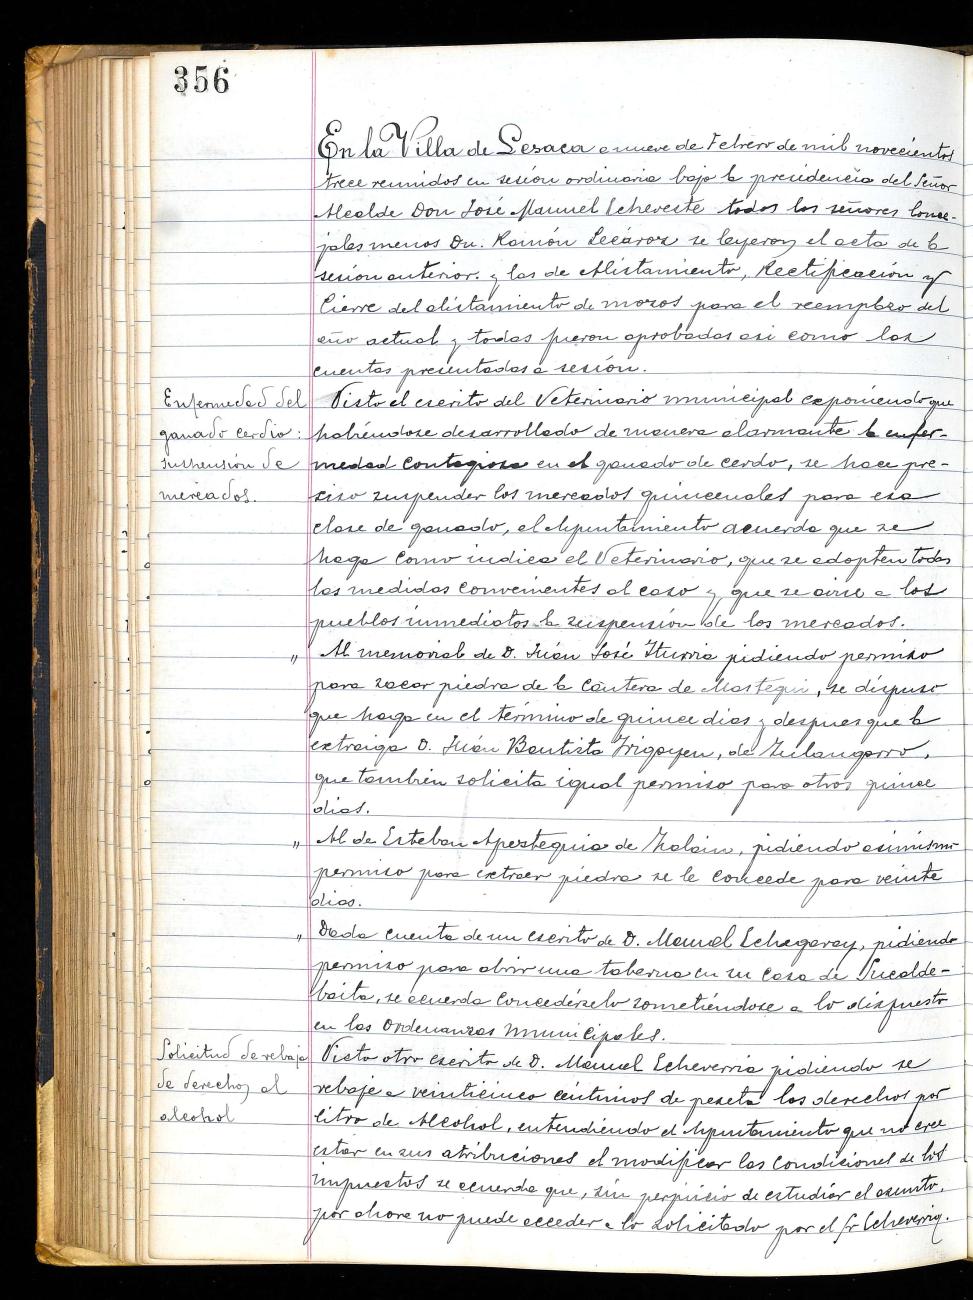 356
En la Villa de Lesaca a nueve de Febrero de mil novecientos
trece reunidos en sesión ordinaria bajo la presidencia del Señor
Alcalde Don José Manuel Echeveste todos los señores conce-
jales menos Dn. Ramón Lecároz se leyeron el acta de la
sesión anterior. y las de Alistamiento, Rectificación y
Cierre del alistamiento de mozos para el reemplazo del
año actual y todas fueron aprobadas asi como las
cuentas presentadas a sesión.
Enfermedad del
ganado cerdio:
suspensión de
mercados.
Visto el escrito del Veterinario municipal exponiendo que
habiéndose desarrollado de manera alarmante la enfer-
medad contagiosa en el ganado de cerdo, se hace pre-
ciso suspender los mercados quincenales para esa
clase de ganado, el Ayuntamiento acuerda que se
haga como indica el Veterinario, que se adopten todas
las medidas convenientes al caso y que se avise a los
pueblos inmediatos la suspensión de los mercados.
" Al memorial de D. Juán José Iturria pidiendo permiso
para sacar piedra de la cantera de Mastegui, se dispuso
que haga en el término de quince dias y despues que la
extraiga D. Juán Bautista Irigoyen, de Zulangarro,
que también solicita igual permiso para otros quince
dias.
" Al de Esteban Apezteguia de Zalain, pidiendo asimismo
permiso para extraer piedra se le concede para veinte
dias.
" Dada cuenta de un escrito de D. Manuel Echegaray, pidiendo
permiso para abrir una taberna en su casa de Sucalde-
baita, se acuerda concedérselo sometiéndose a lo dispuesto
en las Ordenanzas Municipales.
Solicitud de rebaja
de derechos al
alcohol
Visto otro escrito de D. Manuel Echeverria pidiendo se
rebaje a veinticinco céntimos de peseta los derechos por
litro de Alcohol, entendiendo el Ayuntamiento que no cree
estar en sus atribuciones el modificar las condiciones de los
impuestos se acuerda que, sin perjuicio de estudiar el asunto,
por ahora no puede acceder a lo solicitado por el Sr Echeverria.